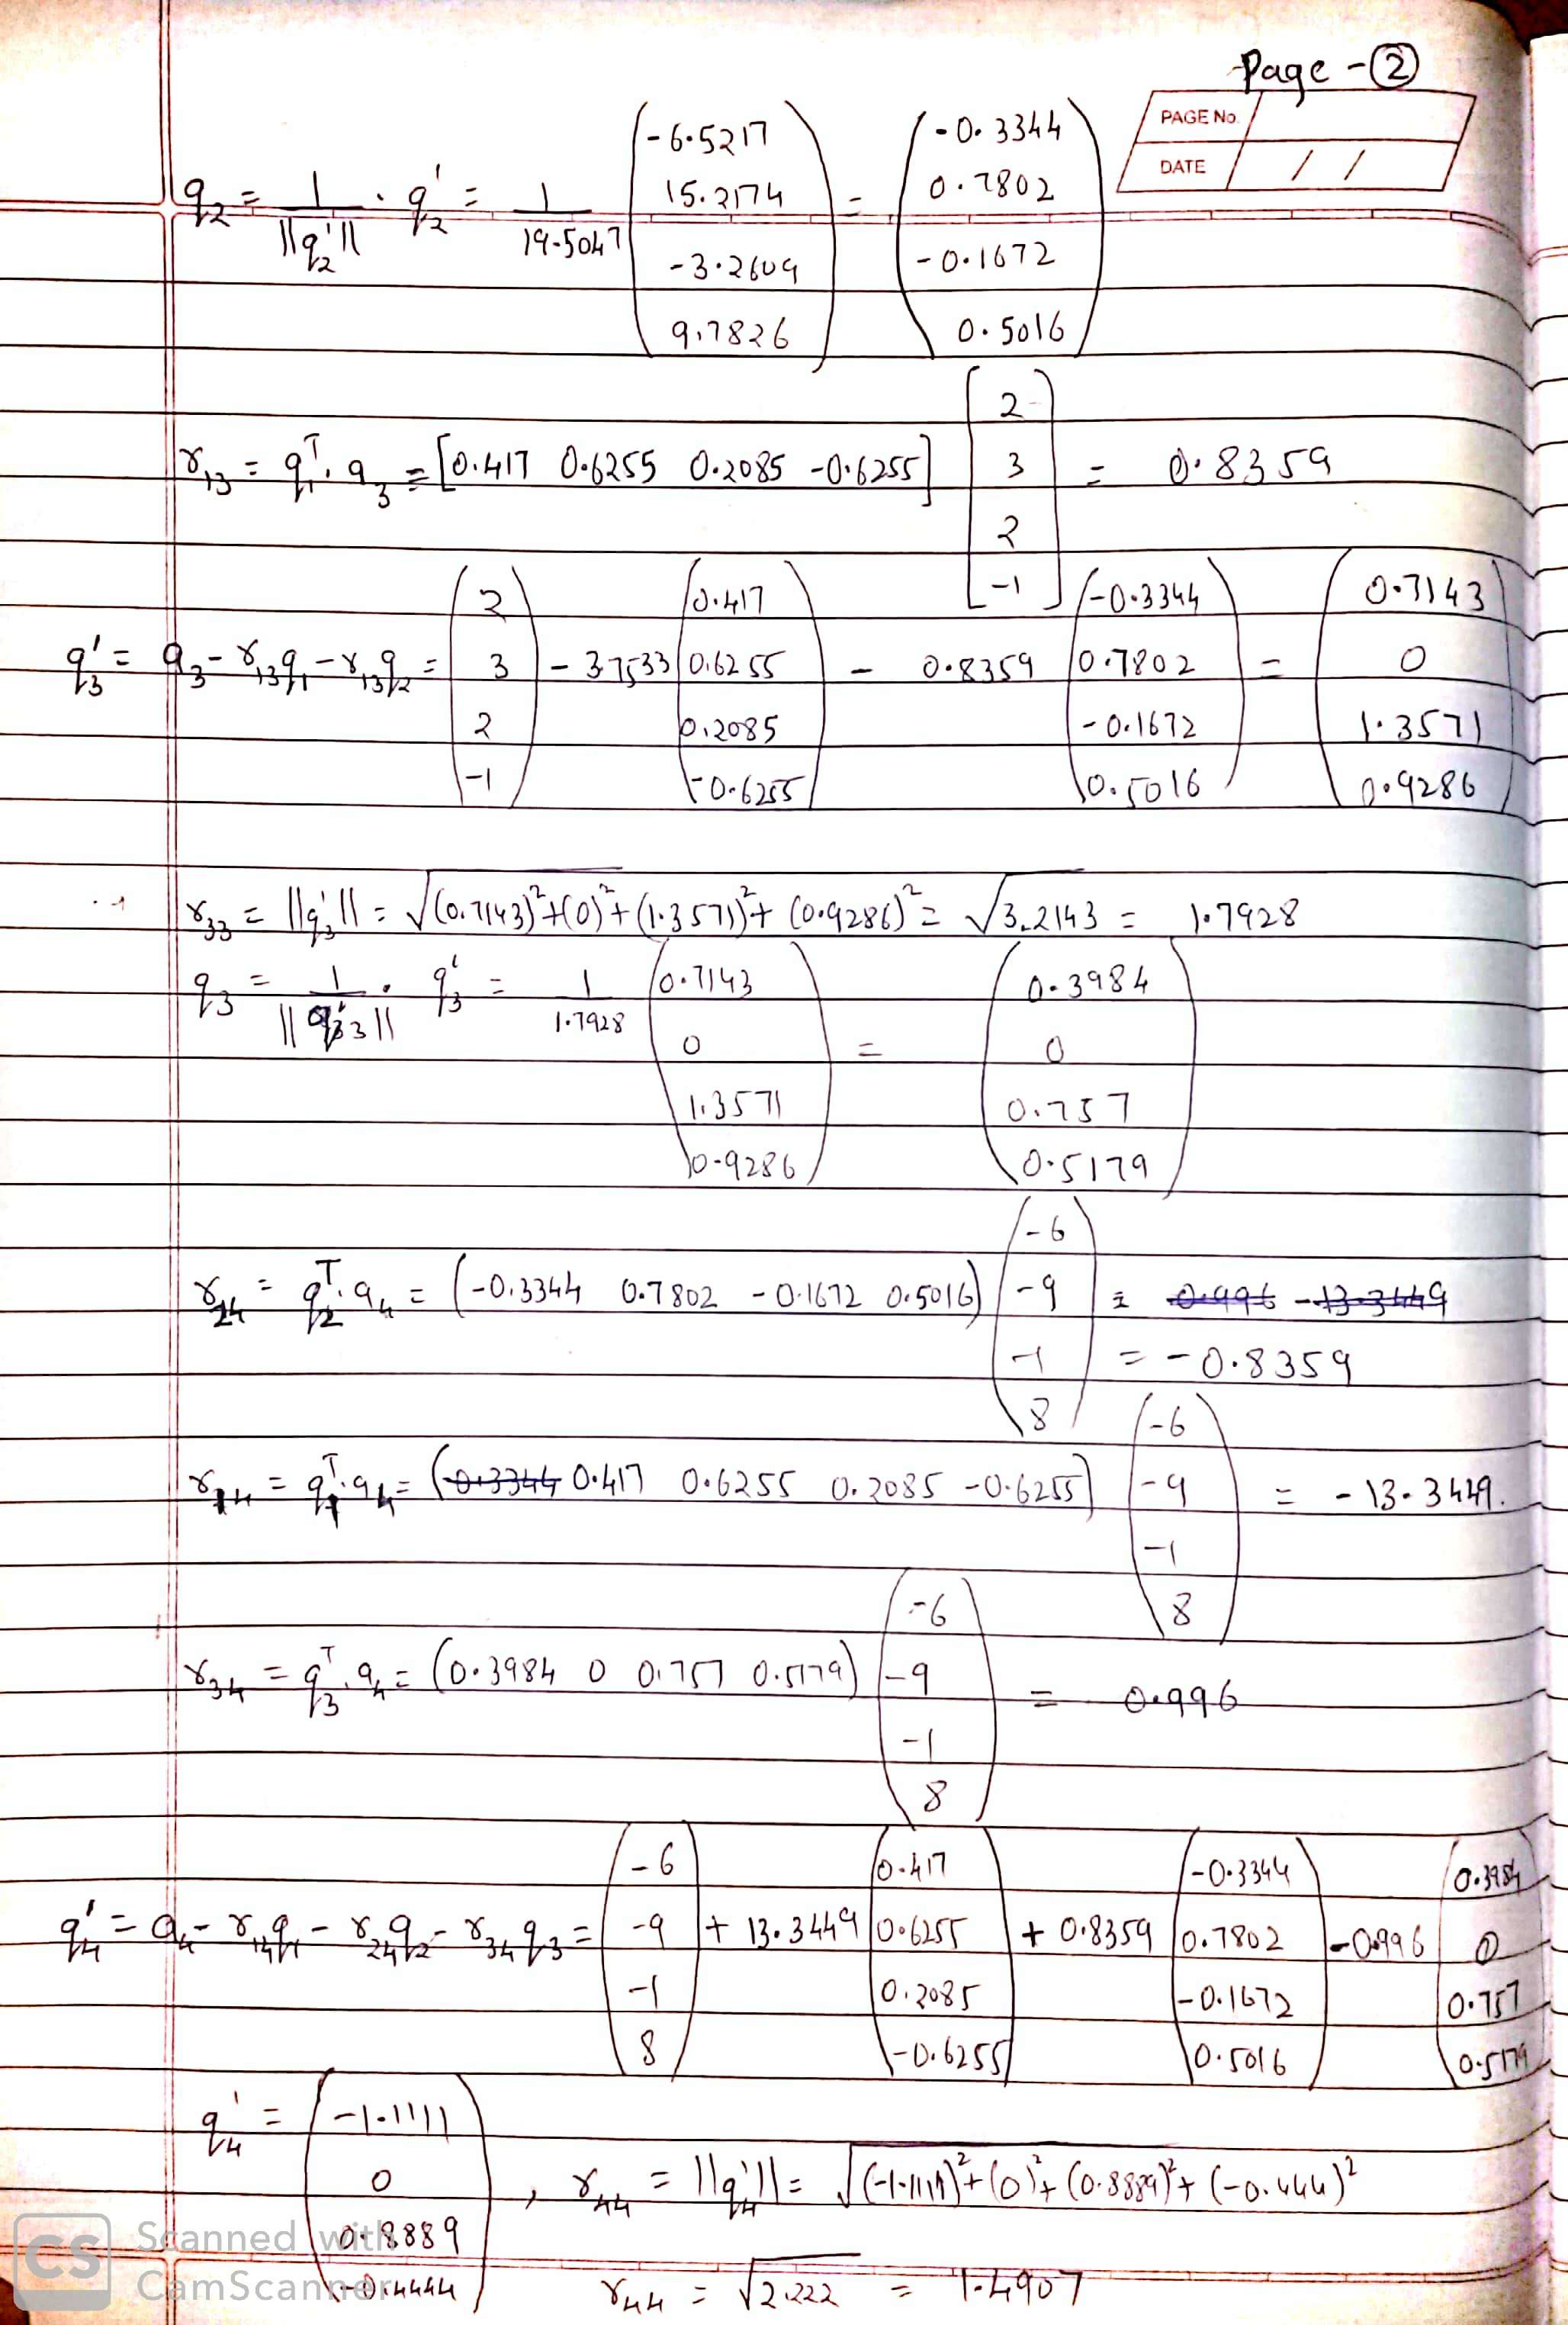 Page - ②
PAGE No.
DATE / /
q₂ = 1/||q₂'|| · q₂' = 1/19.5047 (-6.5217 15.2174 -3.2609 9.7826) = (-0.3344 0.7802 -0.1672 0.5016)
r₁₃ = q₁ᵀ. a₃ = [0.417 0.6255 0.2085 -0.6255] [2 3 2 -1] = 0.8359
q₃' = a₃ - r₁₃q₁ - r₁₃q₂ = (2 3 2 -1) - 3.7533 (0.417 0.6255 0.2085 -0.6255) - 0.8359 (-0.3344 0.7802 -0.1672 0.5016) = (0.7143 0 1.3571 0.9286)
r₃₃ = ||q₃'|| = √(0.7143)²+(0)²+(1.3571)²+(0.9286)² = √3.2143 = 1.7928
q₃ = 1/||q₃'|| · q₃' = 1/1.7928 (0.7143 0 1.3571 0.9286) = (0.3984 0 0.757 0.5179)
r₂₄ = q₂ᵀ.a₄ = (-0.3344 0.7802 -0.1672 0.5016) (-6 -9 -1 8) = 0.996 -13.3449
= -0.8359
r₁₄ = q₁ᵀ.a₄ = (0.3344 0.417 0.6255 0.2085 -0.6255) (-6 -9 -1 8) = -13.3449.
r₃₄ = q₃ᵀ.a₄ = (0.3984 0 0.757 0.5179) (-6 -9 -1 8) = 0.996
q₄' = a₄ - r₁₄q₁ - r₂₄q₂ - r₃₄q₃ = (-6 -9 -1 8) + 13.3449 (0.417 0.6255 0.2085 -0.6255) + 0.8359 (-0.3344 0.7802 -0.1672 0.5016) - 0.996 (0.3984 0 0.757 0.5179)
q₄' = (-1.1111 0 0.8889 -0.4444) , r₄₄ = ||q₄'|| = √(-1.1111)²+(0)²+(0.8889)²+(-0.444)²
r₄₄ = √2.222 = 1.4907
CS Scanned with
CamScanner